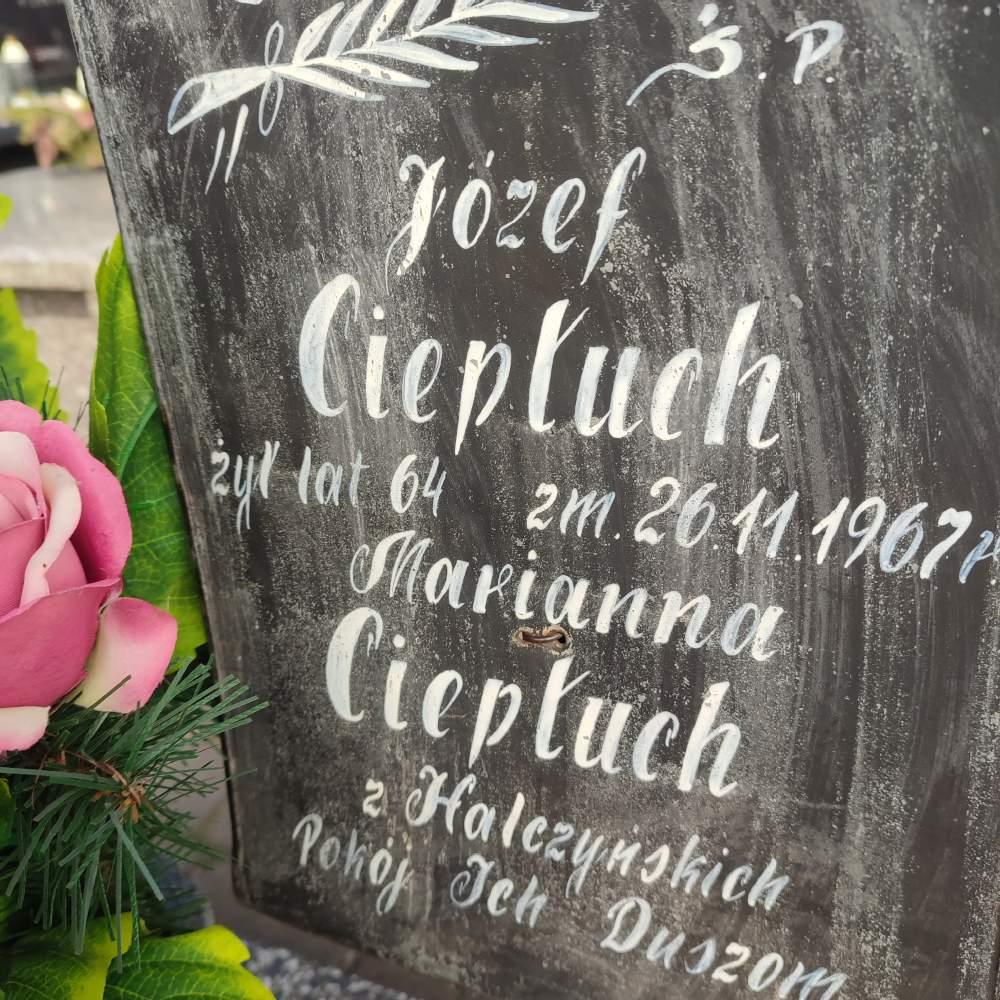 Ś.P.
Józef
Ciepłuch
żył lat 64 zm. 26.11.1967r
Marianna
Ciepłuch
z Halczyńskich
Pokój Ich Duszom